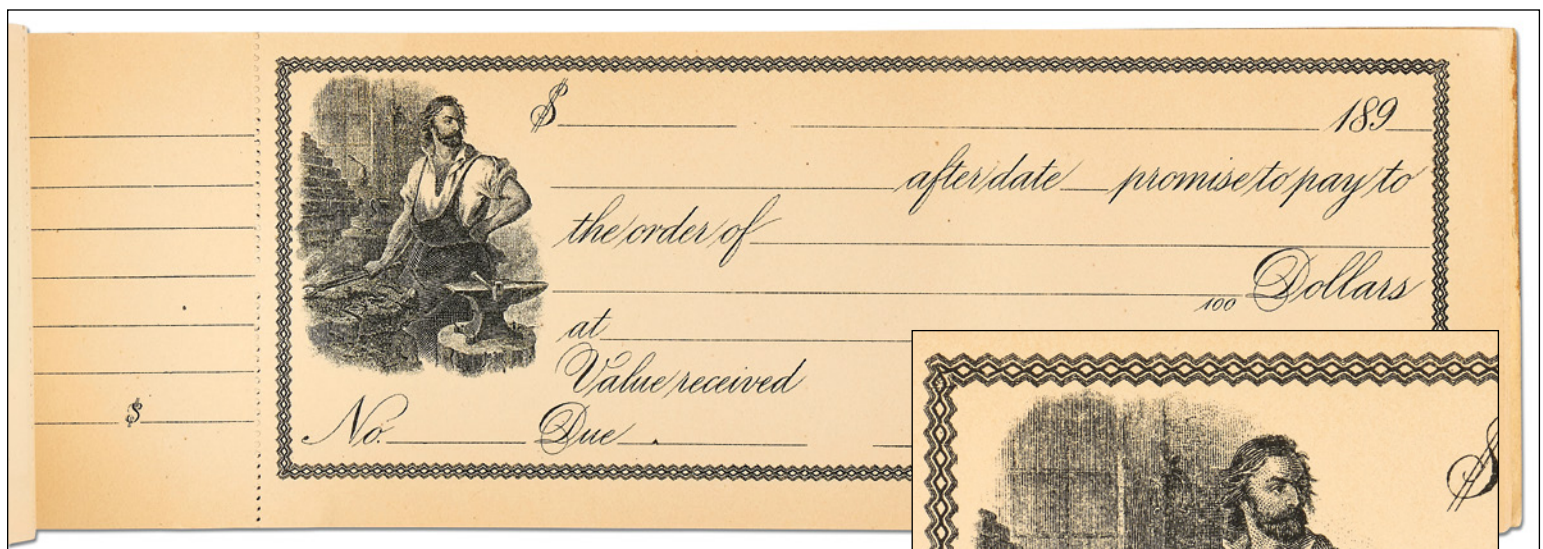 $ 189
after date promise to pay to
the order of
100 Dollars
at
Value received
$
No. Due
$